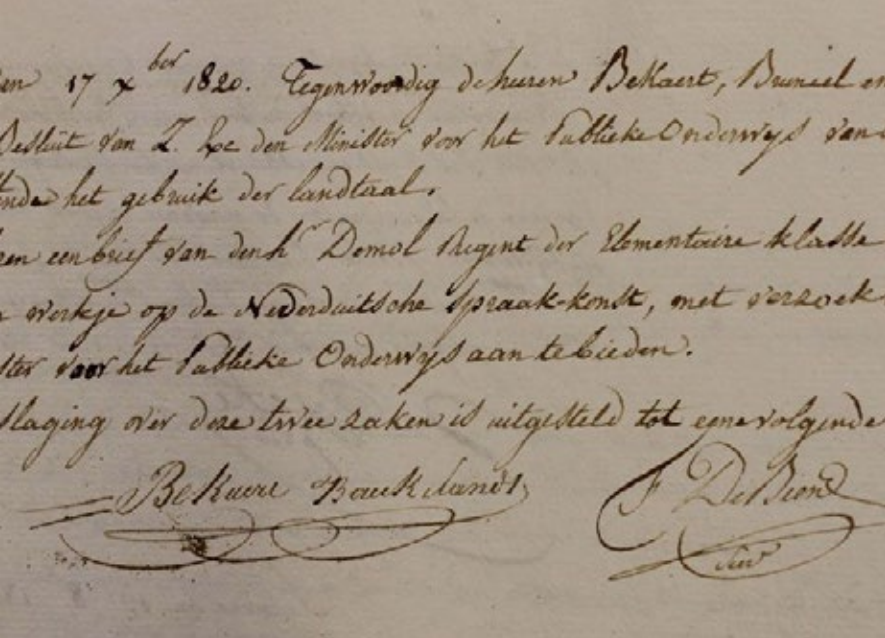 en 17 xber 1820. Tegenwoordig de heeren Bekaert, Bruneel en
Besluit van Z. Exc den Minister voor het Publieke Onderwys van
ende het gebruik der landtaal.
ren een brief van den hr Demol Regent der Elementaire klasse
werkje op de Nederduitsche Spraak-konst, met verzoek
ster voor het Publieke Onderwys aan te bieden.
slaging over deze twee zaken is uitgesteld tot eene volgende
Bekaert Bouckelandt
F DeBien